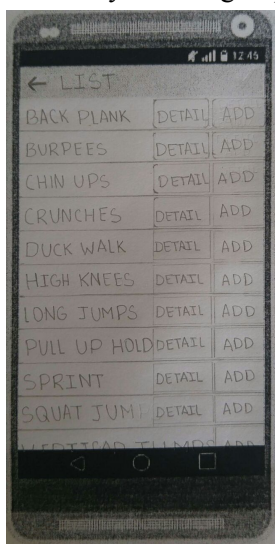 12:45
← LIST
BACK PLANK DETAIL ADD
BURPEES DETAIL ADD
CHIN UPS DETAIL ADD
CRUNCHES DETAIL ADD
DUCK WALK DETAIL ADD
HIGH KNEES DETAIL ADD
LONG JUMPS DETAIL ADD
PULL UP HOLD DETAIL ADD
SPRINT DETAIL ADD
SQUAT JUM DETAIL ADD